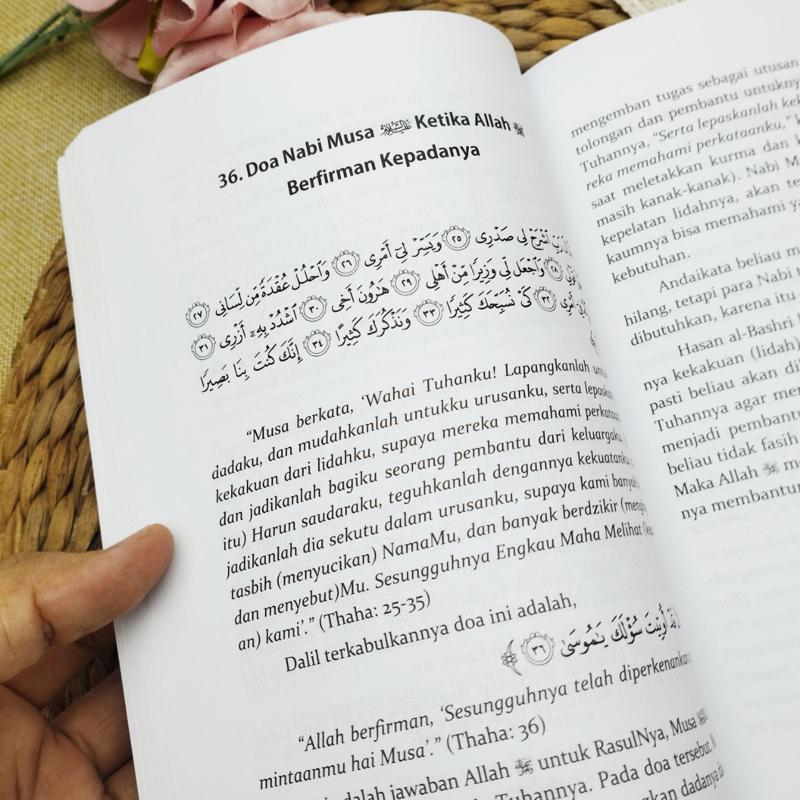 36. Doa Nabi Musa عليه السلام Ketika Allah ﷻ
Berfirman Kepadanya
رَبِّ ٱشْرَحْ لِى صَدْرِى ٢٥ وَيَسِّرْ لِىٓ أَمْرِى ٢٦ وَٱحْلُلْ عُقْدَةً مِّن لِّسَانِى ٢٧
٢٨ وَٱجْعَل لِّى وَزِيرًا مِّنْ أَهْلِى ٢٩ هَٰرُونَ أَخِى ٣٠ ٱشْدُدْ بِهِۦٓ أَزْرِى ٣١
٣٢ كَىْ نُسَبِّحَكَ كَثِيرًا ٣٣ وَنَذْكُرَكَ كَثِيرًا ٣٤ إِنَّكَ كُنتَ بِنَا بَصِيرًا
"Musa berkata, 'Wahai Tuhanku! Lapangkanlah
dadaku, dan mudahkanlah untukku urusanku, serta
kekakuan dari lidahku, supaya mereka memahami
dan jadikanlah bagiku seorang pembantu dari keluargaku,
itu) Harun saudaraku, teguhkanlah dengannya
jadikanlah dia sekutu dalam urusanku, supaya kami banyak
tasbih (menyucikan) NamaMu, dan banyak berdzikir
dan menyebut)Mu. Sesungguhnya Engkau Maha Melihat
an) kami'." (Thaha: 25-35)
Dalil terkabulkannya doa ini adalah,
أُوتِيتَ سُؤْلَكَ يَٰمُوسَىٰ ٣٦ ﴾
"Allah berfirman, 'Sesungguhnya telah diperkenankan
mintaanmu hai Musa'." (Thaha: 36)
adalah jawaban Allah ﷻ untuk RasulNya, Musa
Tuhannya. Pada doa tersebut,
dadanya
mengemban tugas sebagai utusan
tolongan dan pembantu
Tuhannya, "Serta lepaskanlah
reka memahami perkataanku,"
saat meletakkan kurma dan
masih kanak-kanak). Nabi
kepelatan lidahnya, akan
kaumnya bisa memahami
kebutuhan.
Andaikata beliau
hilang, tetapi para Nabi
dibutuhkan, karena itu
Hasan al-Bashri
nya kekakuan (lidah)
pasti beliau akan
Tuhannya agar
menjadi
beliau tidak fasih
Maka Allah ﷻ
nya